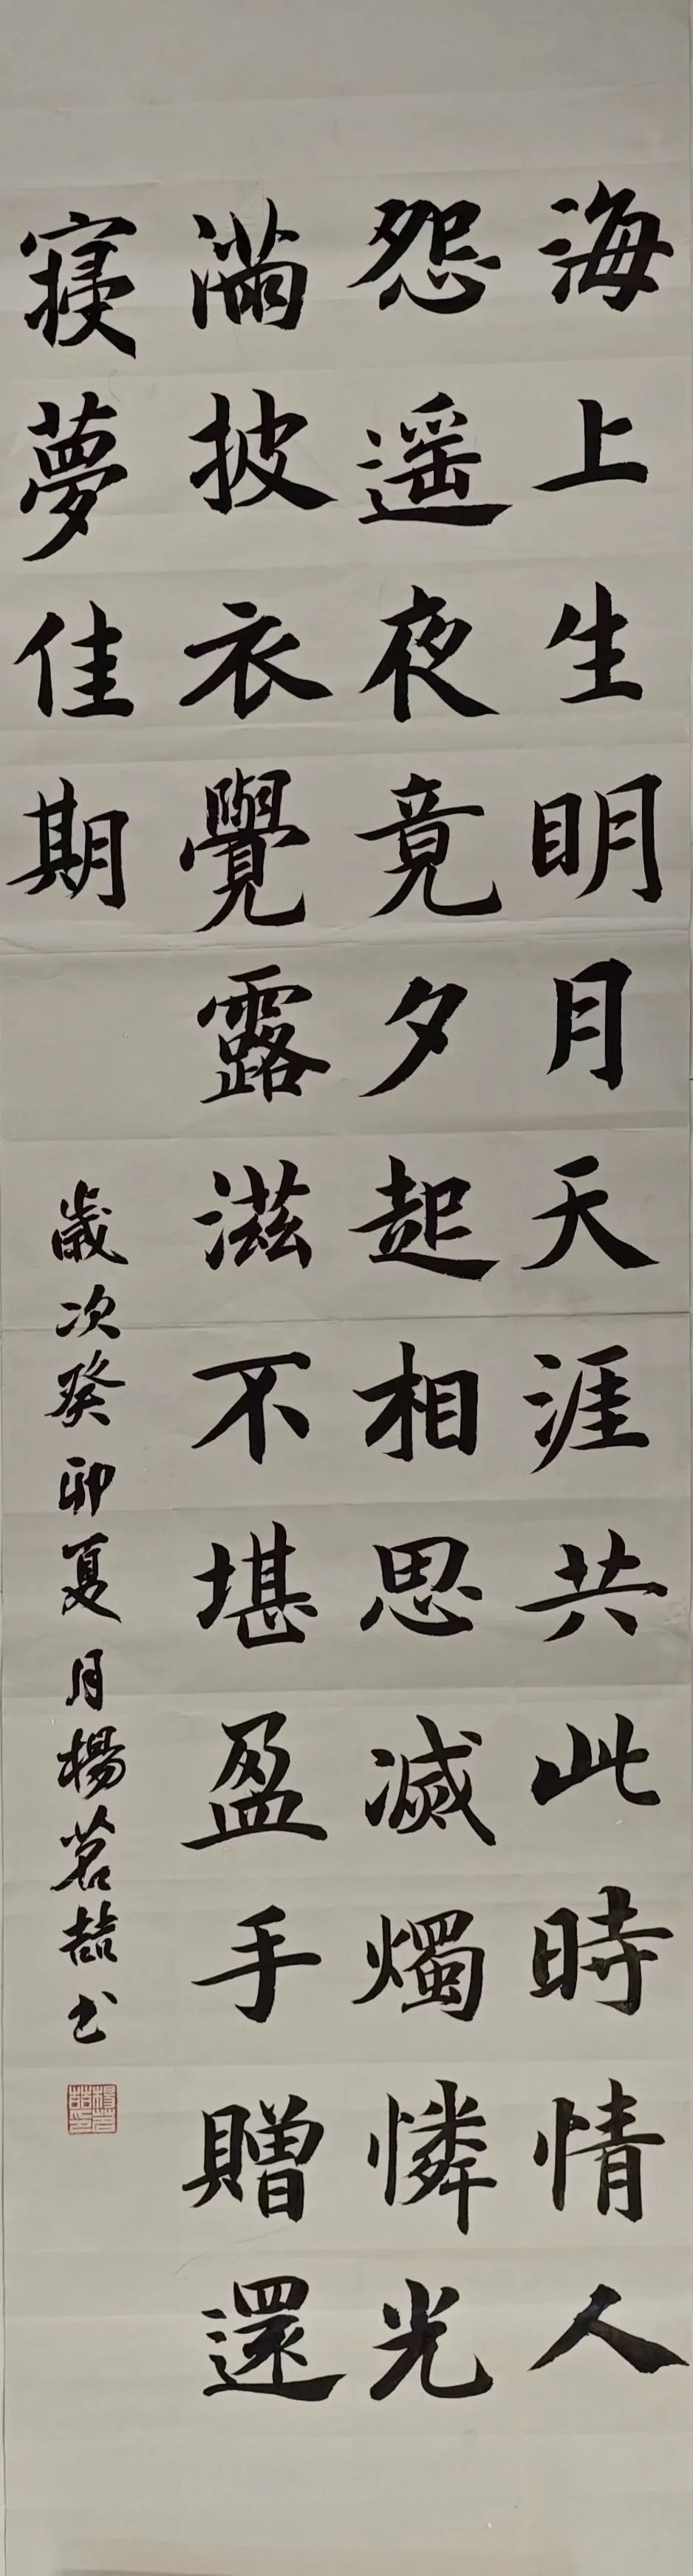 海上生明月天涯共此時情人
怨遥夜竟夕起相思滅燭憐光
滿披衣覺露滋不堪盈手贈還
寝夢佳期
歲次癸卯夏月楊茗喆书